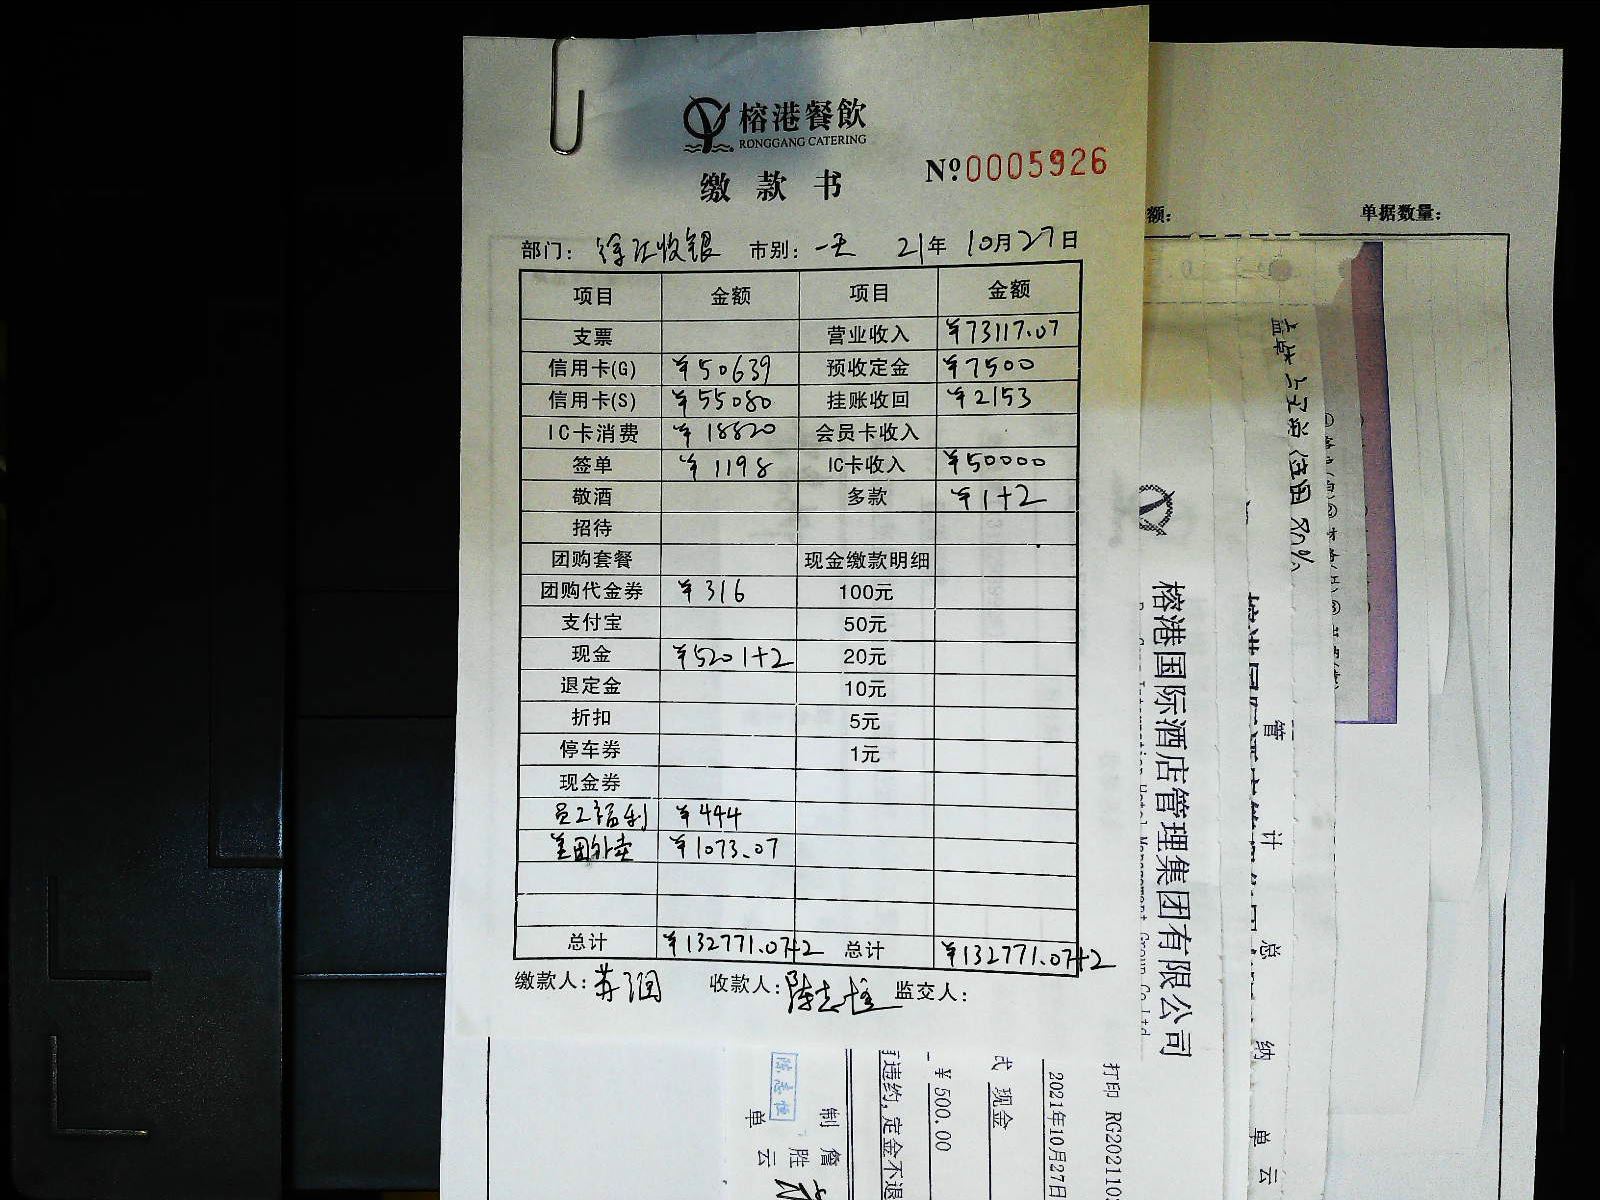 榕港餐飲
RONGGANG CATERING
缴款书
№0005926
部门：徐汇收银 市别：一天 21年10月27日
项目 金额 项目 金额
支票 营业收入 ¥73117.07
信用卡(G) ¥50639 预收定金 ¥7500
信用卡(S) ¥55080 挂账收回 ¥2153
IC卡消费 ¥18820 会员卡收入
签单 ¥1198 IC卡收入 ¥50000
敬酒 多款 ¥1+2
招待
团购套餐 现金缴款明细
团购代金券 ¥316 100元
支付宝 50元
现金 ¥5201+2 20元
退定金 10元
折扣 5元
停车券 1元
现金券
员工福利 ¥444
美团外卖 ¥1073.07
总计 ¥132771.07+2 总计 ¥132771.07+2
缴款人： 收款人： 监交人：
额：
单据数量：
榕港国际酒店管理集团有限公司
管 计 总 纳 单 云
打印 RG202110
2021年10月27日
式 现金
¥500.00
违约，定金不退
制 詹胜云
单
陈志恒